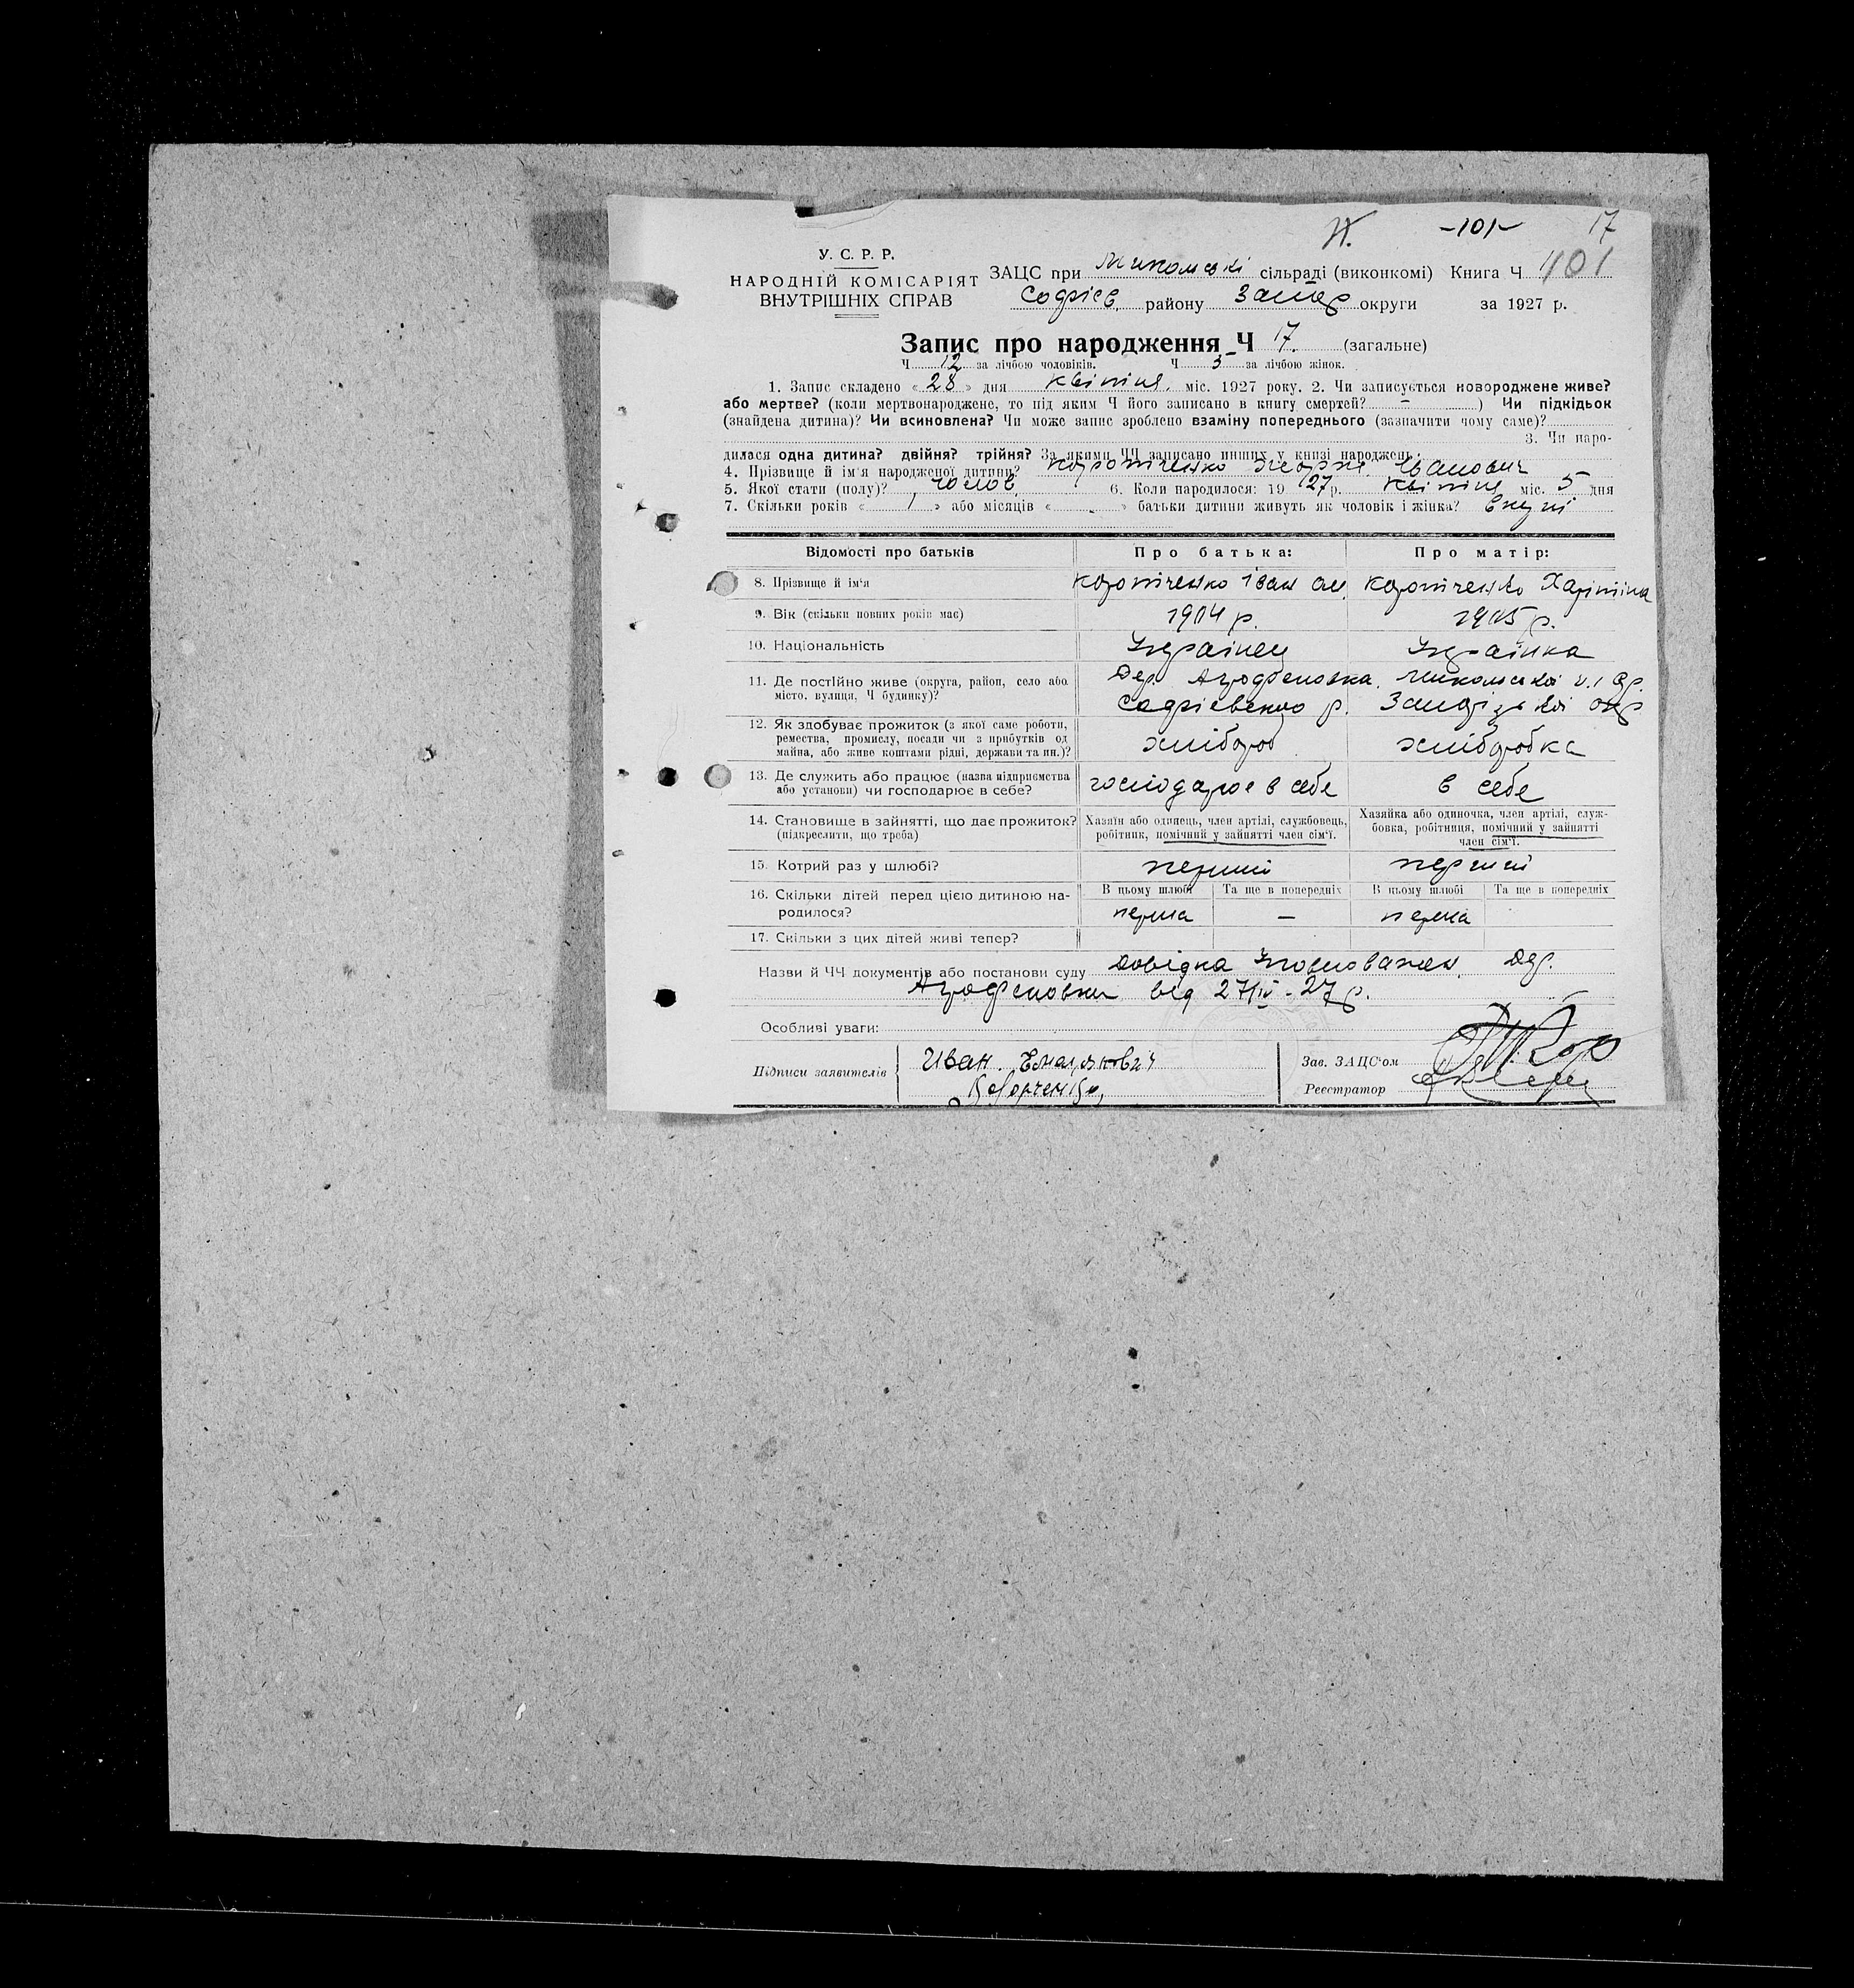 -101- 17
У. С. Р. Р.
НАРОДНІЙ КОМІСАРІЯТ
ВНУТРІШНІХ СПРАВ
ЗАЦС при сільраді (виконкомі) Книга Ч 101
Софієв. району округи за 1927 р.
Запис про народження Ч 17. (загальне)
Ч 12 за лічбою чоловіків. Ч 5 за лічбою жінок.
1. Запис складено « 28 » дня квітня міс. 1927 року. 2. Чи записується новороджене живе?
або мертве? (коли мертвонароджене, то під яким Ч його записано в книгу смертей? – ) Чи підкідьок
(знайдена дитина)? Чи всиновлена? Чи може запис зроблено взаміну попереднього (зазначити чому саме)?
3. Чи наро-
дилася одна дитина? двійня? трійня? За якими ЧЧ записано инших у книзі народжень:
4. Прізвище й ім'я народженої дитини? Коротченко Іванович
5. Якої стати (полу)? чолов. 6. Коли народилося: 1927 р. квітня міс. 5 дня
7. Скільки років « » або місяців « » батьки дитини живуть як чоловік і жінка? вкупі
Відомості про батьків Про батька: Про матір:
8. Прізвище й ім'я Коротченко Іван Коротченко Харітіна
9. Вік (скільки повних років має) 1904 р. 1905 р.
10. Національність Українец Українка
11. Де постійно живе (округа, район, село або
місто, вулиця, Ч будинку)?
Дер.
Софієвського р. Запорізької окр
12. Як здобуває прожиток (з якої саме роботи,
ремества, промислу, посади чи з прибутків од
майна, або живе коштами рідні, держави та ин.)?
хлібороб хліборобка
13. Де служить або працює (назва підприємства
або установи) чи господарює в себе?
господарює в себе в себе
14. Становище в зайнятті, що дає прожиток?
(підкреслити, що треба)
Хазяїн або одинець, член артілі, службовець,
робітник, помічний у зайнятті член сім'ї.
Хазяйка або одиночка, член артілі, служ-
бовка, робітниця, помічний у зайнятті
член сім'ї.
15. Котрий раз у шлюбі? перший перший
16. Скільки дітей перед цією дитиною на-
родилося?
В цьому шлюбі Та ще в попередніх В цьому шлюбі Та ще в попередніх
перша – перша
17. Скільки з цих дітей живі тепер?
Назви й ЧЧ документів або постанови суду Довідка Уповноважен. Дер.
від 27/IV-27 р.
Особливі уваги:
Підписи заявителів Иван
Коротченко
Зав. ЗАЦС'ом
Реєстратор